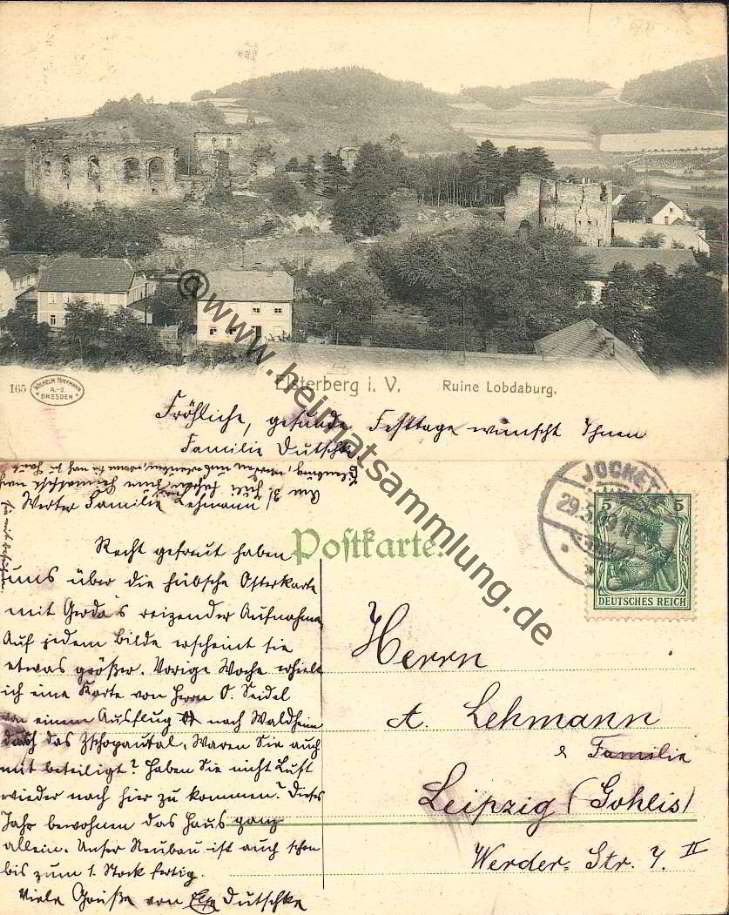 165
WILHELM HOFFMANN
A.-G.
DRESDEN
Elsterberg i. V. Ruine Lobdaburg.
Fröhliche, gesunde Festtage wünscht Ihnen
Familie Dutschke
© www.heimatsammlung.de
Werter Familie Lehmann!
Recht gefreut haben
uns über die hübsche Osterkarte
mit Gerda's reizender Aufnahme
Auf jedem Bilde erscheint sie
etwas größer. Vorige Woche erhielt
ich eine Karte von Herrn O. Seidel
von einem Ausflug nach Waldheim
durch das Zschopautal. Waren Sie auch
mit beteiligt? Haben Sie nicht Lust
wieder nach hier zu kommen? Dieses
Jahr bewohnen das Haus ganz
allein. Unser Neubau ist auch schon
bis zum 1. Stock fertig.
Viele Grüße von Else Dutschke
Postkarte.
JOCKETA
29.5.
5 5
DEUTSCHES REICH
Herrn
A. Lehmann
& Familie
Leipzig (Gohlis)
Werder-Str. 4. II